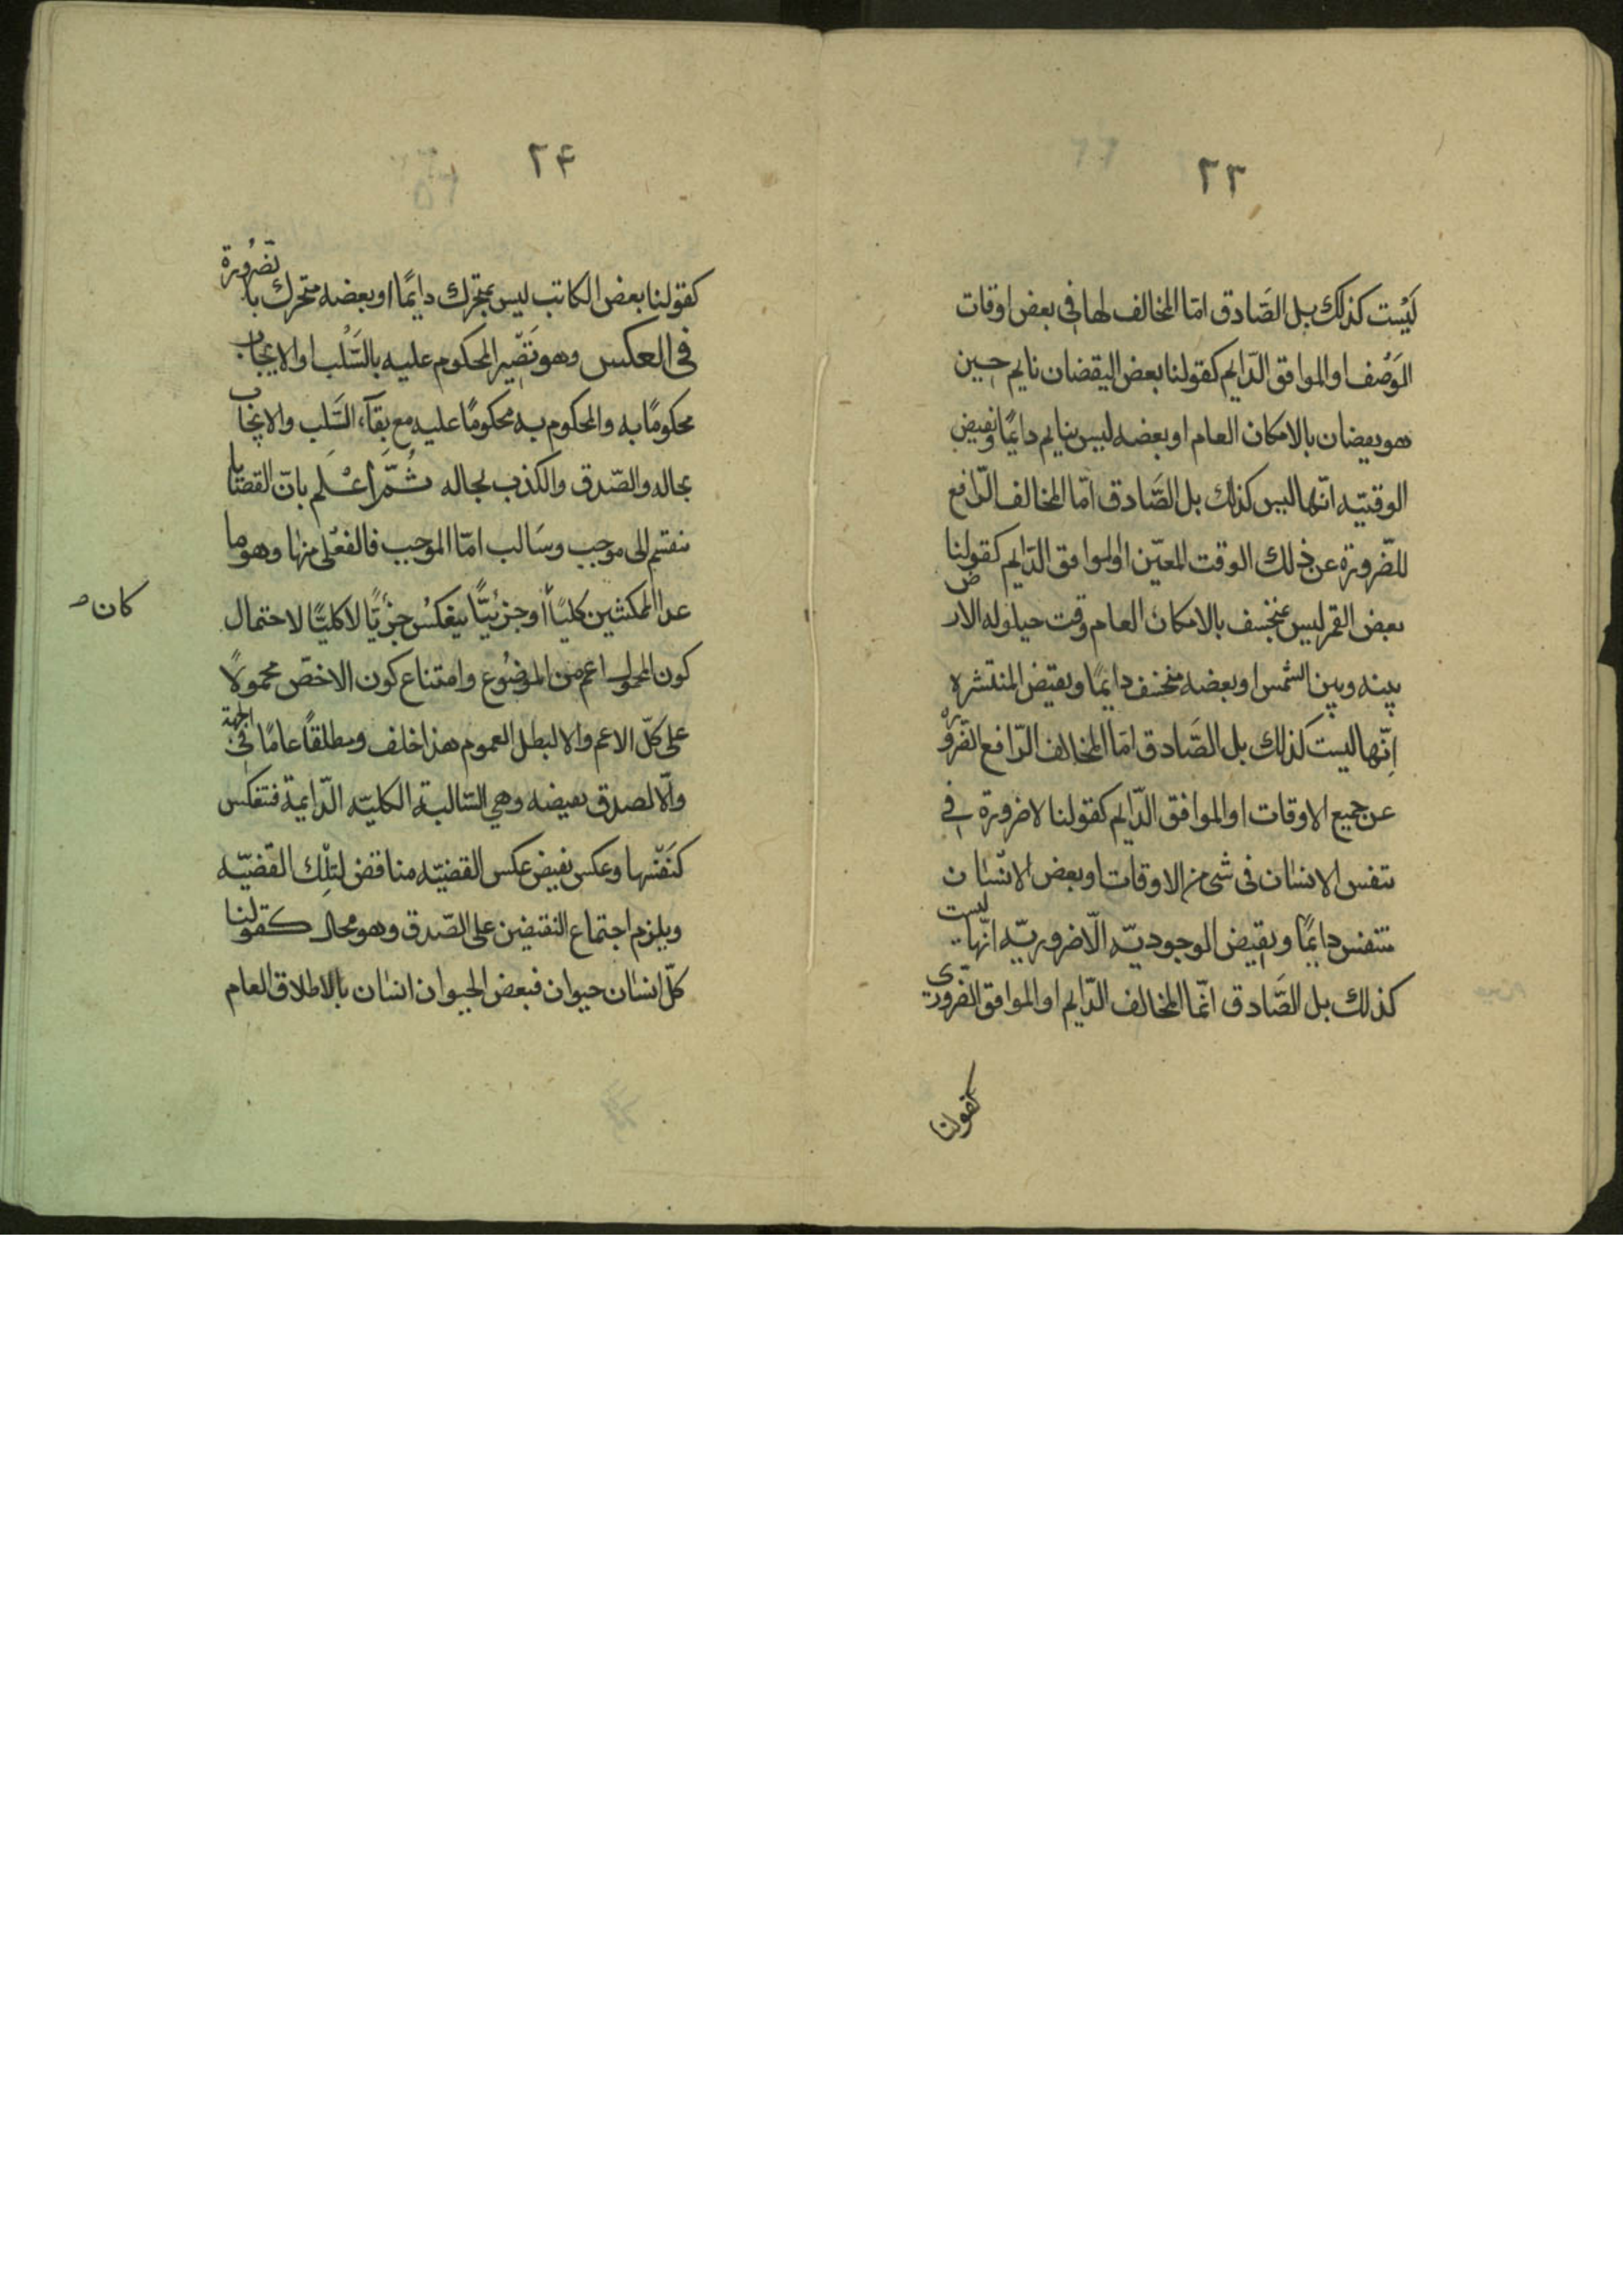 ٢٣
لَيْست كذلك بل الصَّادق امّا المخالف لها فى بعض اوقات
الوَصْف او الموافق الدّايم كقولنا بعض اليقضان نايم حين
هو يقضان بالامكان العام او بعضه ليس بنايم دايمًا ونقيض
الوقتيّه انّها ليس كذلك بل الصَّادق امّا المخالف الرّافع
للضّرورة عن ذلك الوقت المعيّن او الموافق الدّايم كقولنا
بعض القمر ليس بمنخسف بالامكان العام وقت حيلوله الارض
بينه وبين الشمس او بعضه منخسف دايمًا ونقيض المنتشره
انّها ليست كذلك بل الصَّادق امّا المخالف الرّافع الضّروره
عن جميع الاوقات او الموافق الدّايم كقولنا لا ضرورة فى
تنفس الانسان فى شئ من الاوقات او بعض الانسان
متنفس دايمًا ونقيض الوجوديّه الّاضروريّه انّها ليست
كذلك بل الصَّادق امّا المخالف الدّايم او الموافق الضّرورى
كقولنا
٢۴
كقولنا بعض الكاتب ليس بمتحرك دايمًا او بعضه متحرك بالضّرورة
فى العكس وهو تصّيير المحكوم عليه بالسَّلْب او الايجاب
محكومًا به والمحكوم به محكومًا عليه مع بقآء السَّلب والايجاب
بحاله والصّدق والكذب بحاله ثُمَّ اعْلم بانّ القضايا
تنقسم الى موجب وسَالب امّا الموجب فالفعْلى منها وهو ما
عدا الممكنتين كليًّا او جزئيًّا ينعكسُ جزئيًّا لا كليًّا لاحتمال
كان
كون المحمول اعم من الموضُوع وامتناع كون الاخصّ محمولًا
على كلّ الاعم والا لبطل العموم هذا خلف ومطلقًا عامًا فى الجهة
والّا لصدق نقيضه وهي السّالبة الكليّه الدّايمة فتنعكس
كنَفْسها وعكس نقيض عكس القضيّه مناقض لتِلْك القضيّه
ويلزم اجتماع النقيضين على الصّدق وهو محال كقولنا
كلّ انسان حيوان فبعض الحيوان انسان بالاطلاق العام